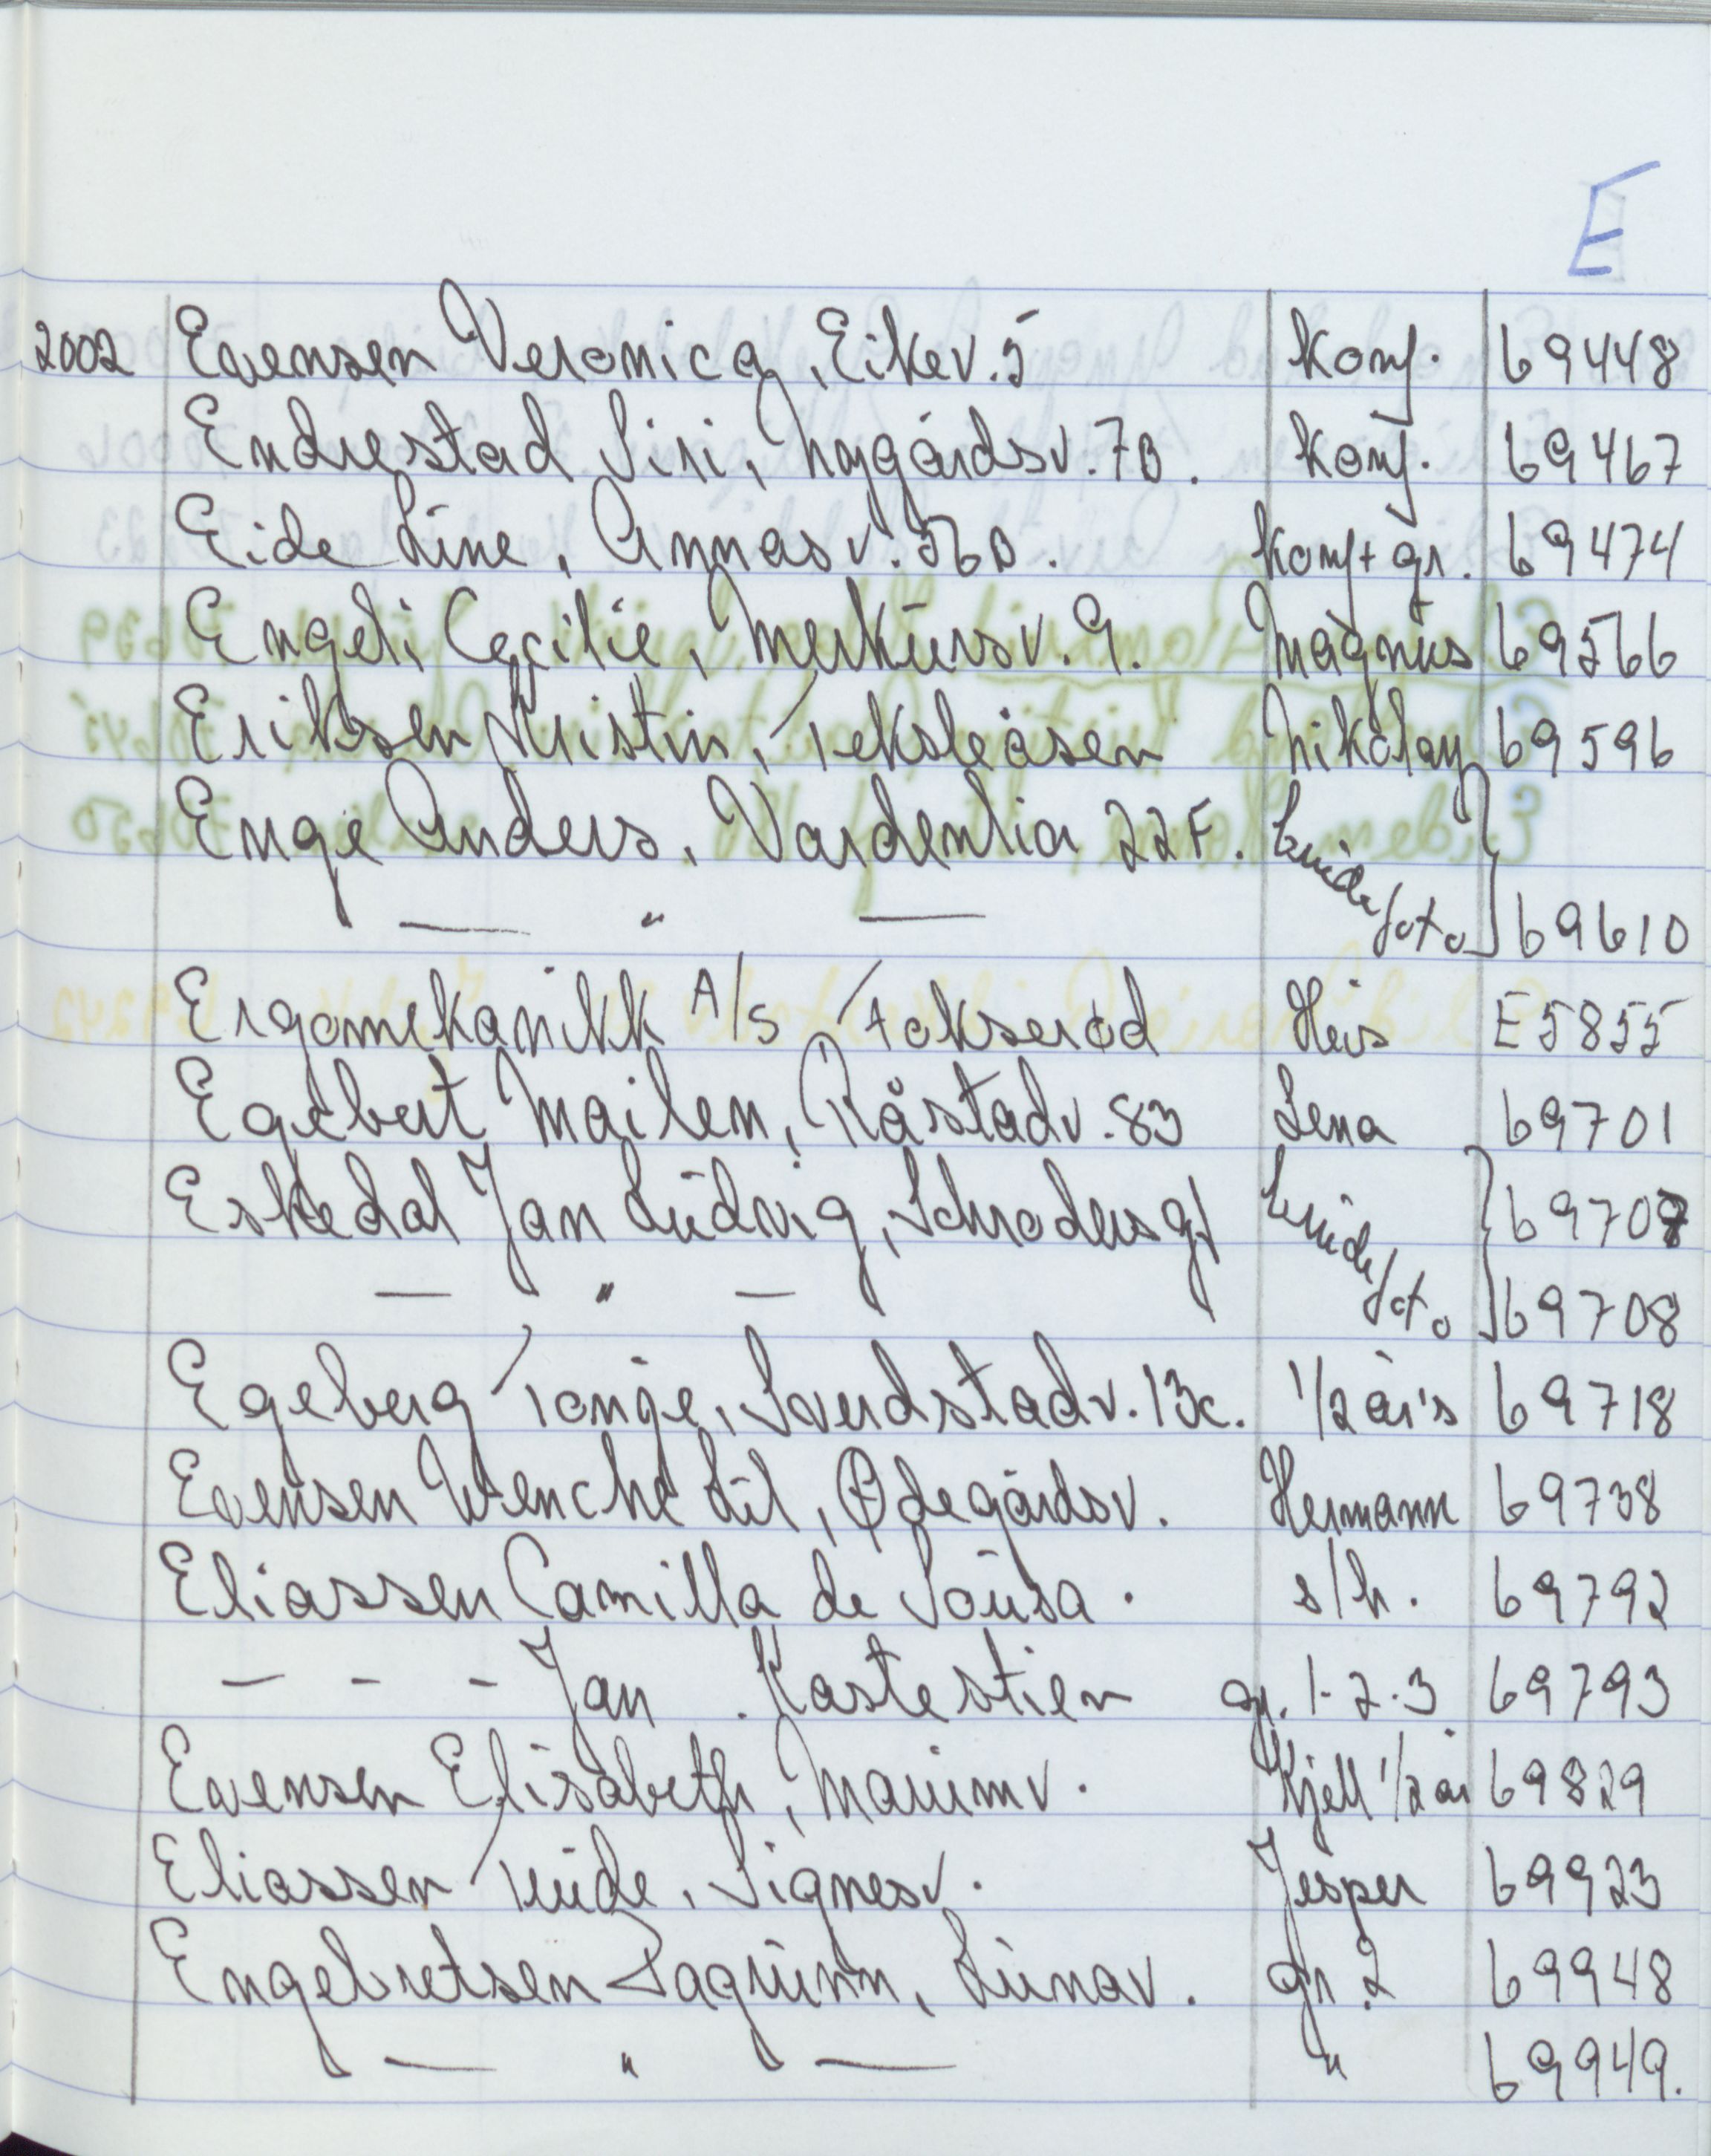 E
2002 Evensen Veronica, Eikev. 5 Konf. 69448
Endrestad Siri, Nygårdsv. 7B. Konf. 69467
Eide Line, Annasv. 56B. Konf + gr. 69474
Engeli Cecilie, Merkursv. 9. Magnus 69566
Eriksen Kristin, Teksleåsen Nikolay 69596
Enge Anders, Vardenlia 22F. brude
— " — foto 69610
Ergomekanikk A/S Fokserød Heis E5855
Egebert Mailen, Råstadv. 83 Lena 69701
Eskedal Jan Ludvig, Schrødersgt brude 69707
— " — foto 69708
Egeberg Tonje, Sverdstadv. 13c. 1/2 år's 69718
Evensen Wenche Lil, Ødegårdsv. Hermann 69738
Eliassen Camilla de Sousa. s/h. 69792
— - - Jan . Kastestien gr. 1-2-3 69793
Evensen Elisabeth, Mariimv. Kjell 1/2 år 69829
Eliassen Trude, Signesv. Jesper 69923
Engebretsen Dagrunn, Lunav. gr. 2 69948
— " — " 69949.